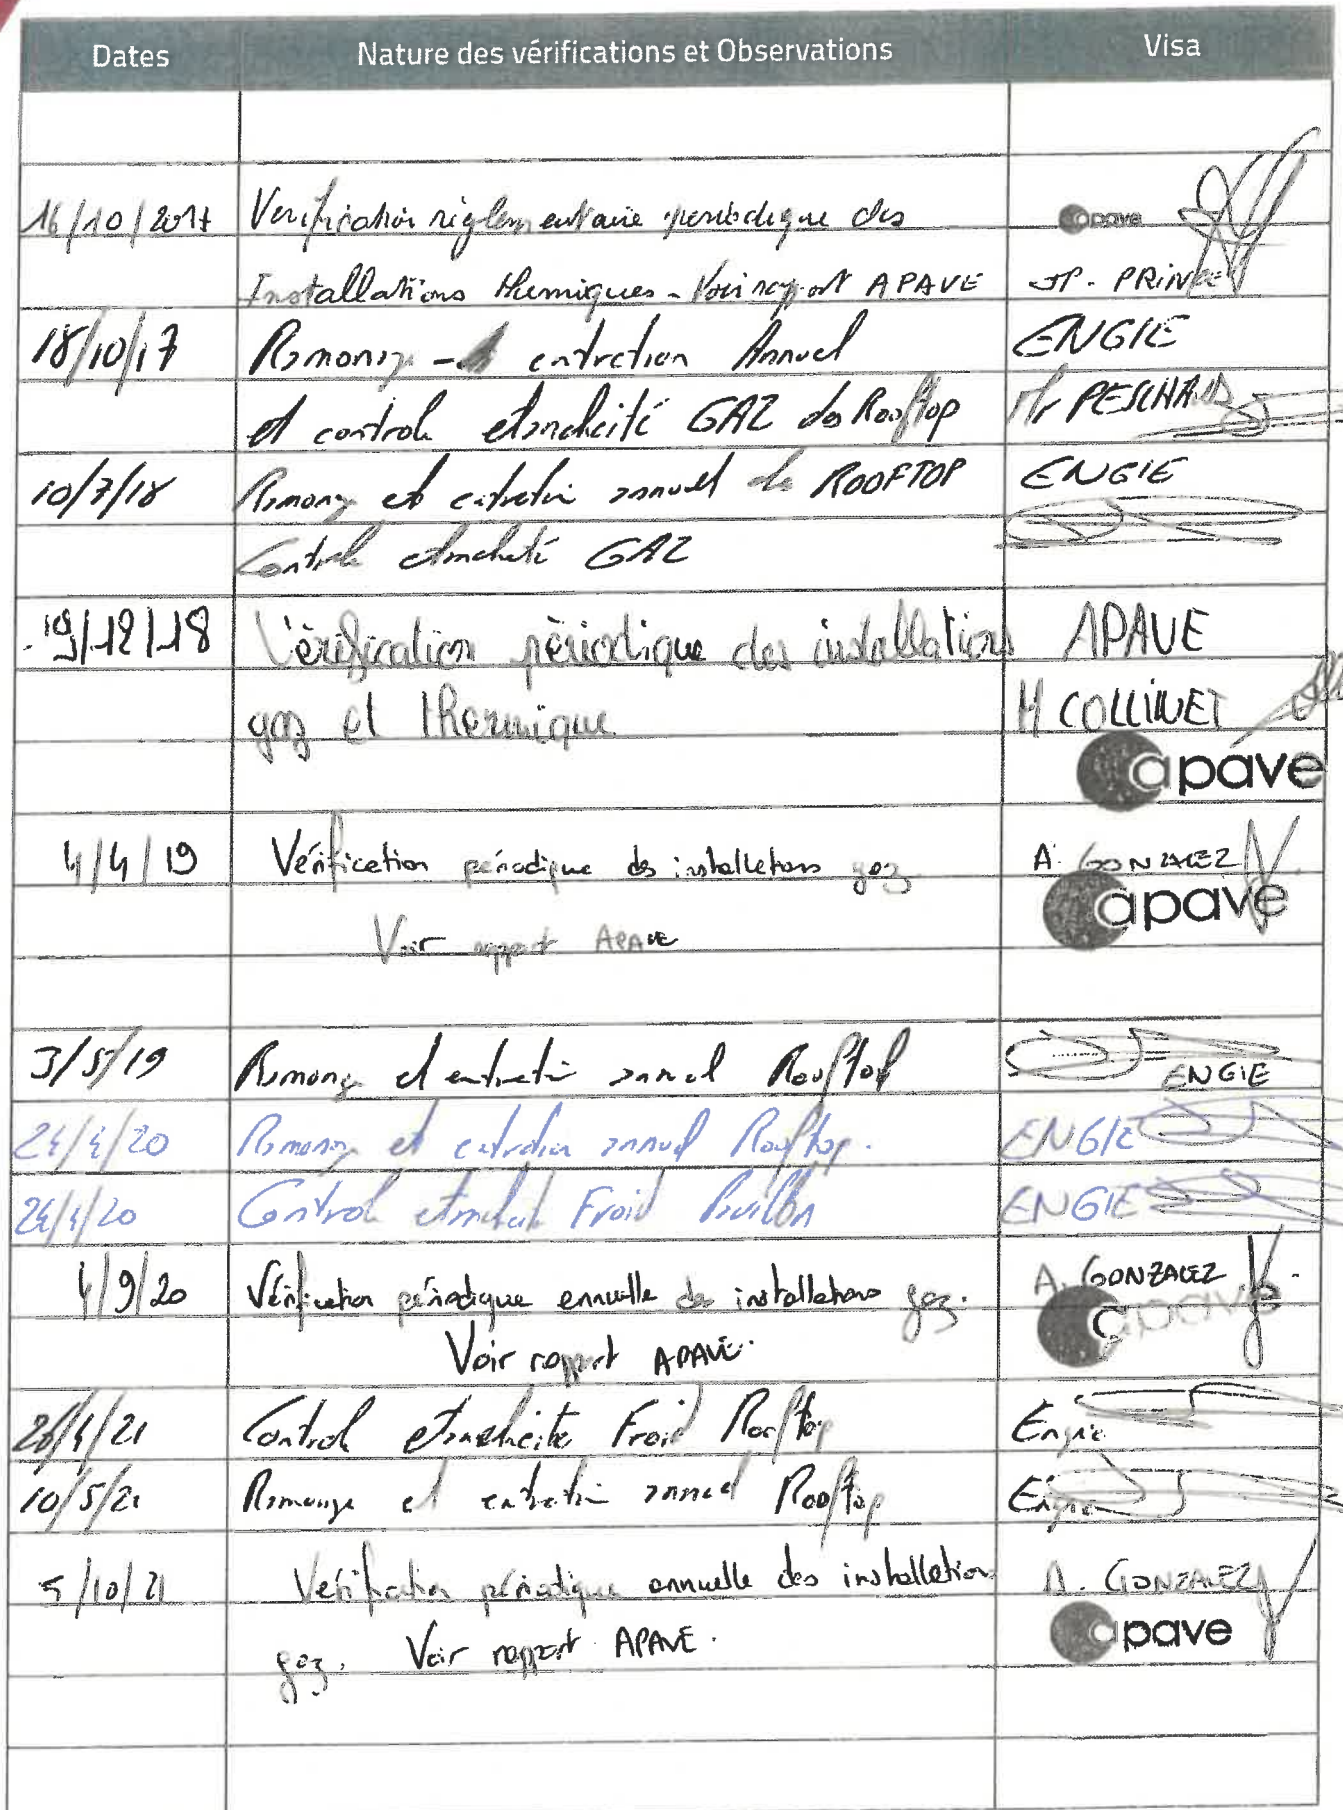 Dates Nature des vérifications et Observations Visa
16/10/2017 Vérification réglementaire périodique des apave
Installations thermiques - Voir rapport APAVE JP. PRINCE
18/10/17 Ramonage - entretien Annuel ENGIE
et controle etancheité GAZ des Rooftop Mr PESCHARD
10/7/18 Ramonage et entretien annuel de ROOFTOP ENGIE
Controle etancheité GAZ
19/12/18 Vérification périodique des installations APAVE
gaz et thermique M COLLINET
apave
4/4/19 Vérification périodique des installations gaz A. GONZALEZ
apave
Voir rapport APAVE
3/5/19 Ramonage et entretien annuel Rooftop ENGIE
24/4/20 Ramonage et entretien annuel Rooftop. ENGIE
24/4/20 Control Froid ENGIE
4/9/20 Vérification périodique annuelle des installations gaz. A. GONZALEZ
apave
Voir rapport APAVE.
26/4/21 Control etancheite Froid Rooftop Engie
10/5/21 Ramonage et entretien annuel Rooftop Engie
5/10/21 Vérification périodique annuelle des installations A. GONZALEZ
gaz. Voir rapport APAVE. apave